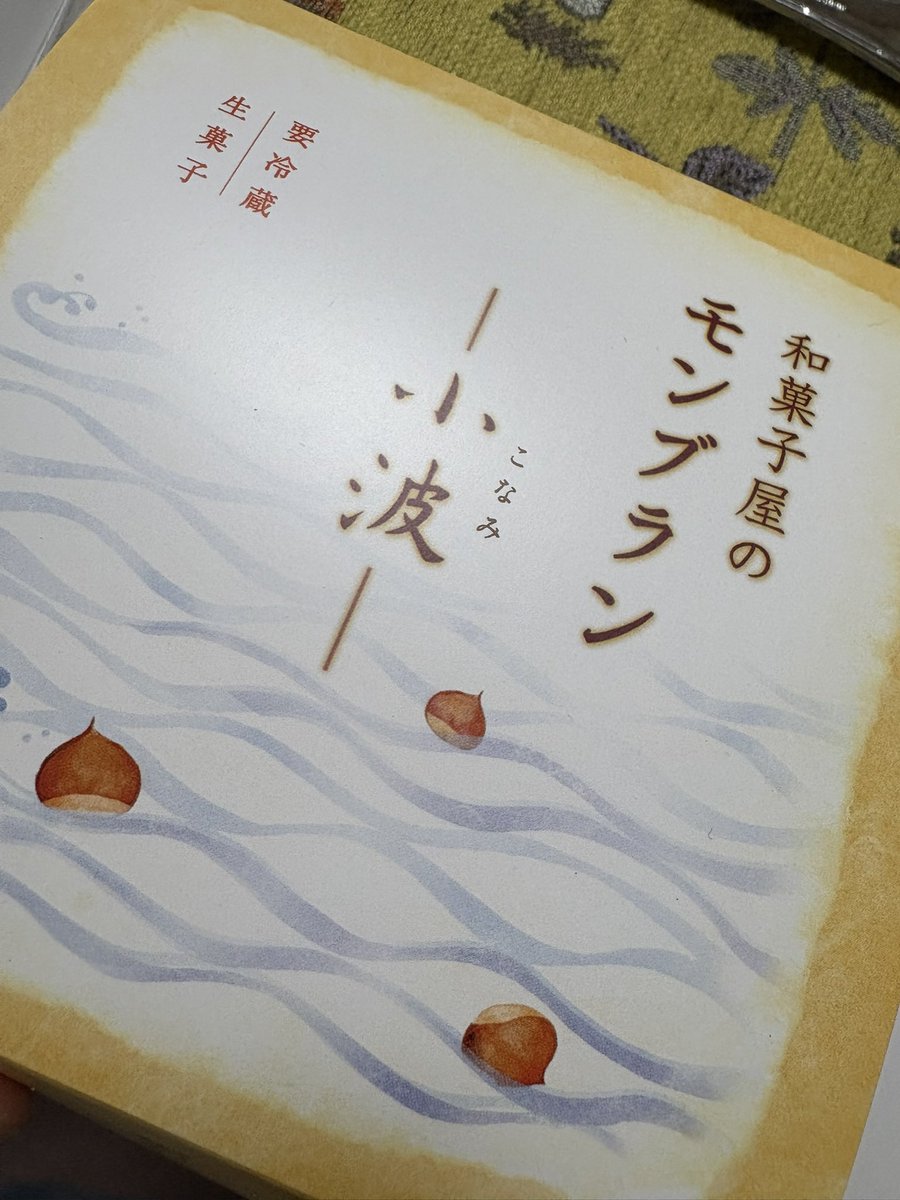 和菓子屋の
モンブラン
こなみ
小波
要冷蔵
生菓子